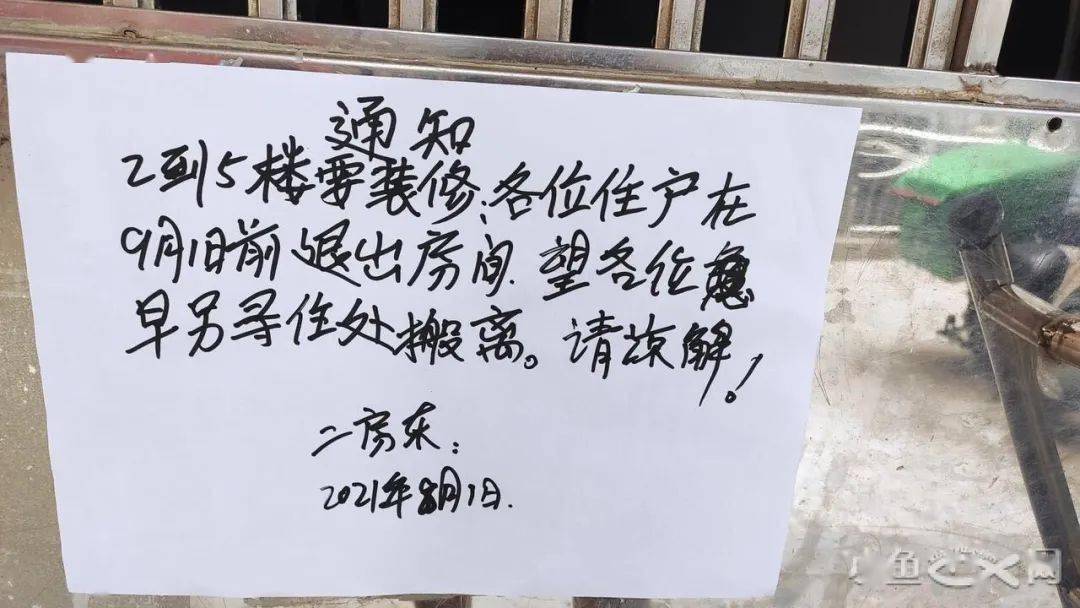 通知
2到5楼要装修;各位住户在
9月1日前退出房间.望各位
早另寻住处搬离。请谅解!
二房东:
2021年8月1日.